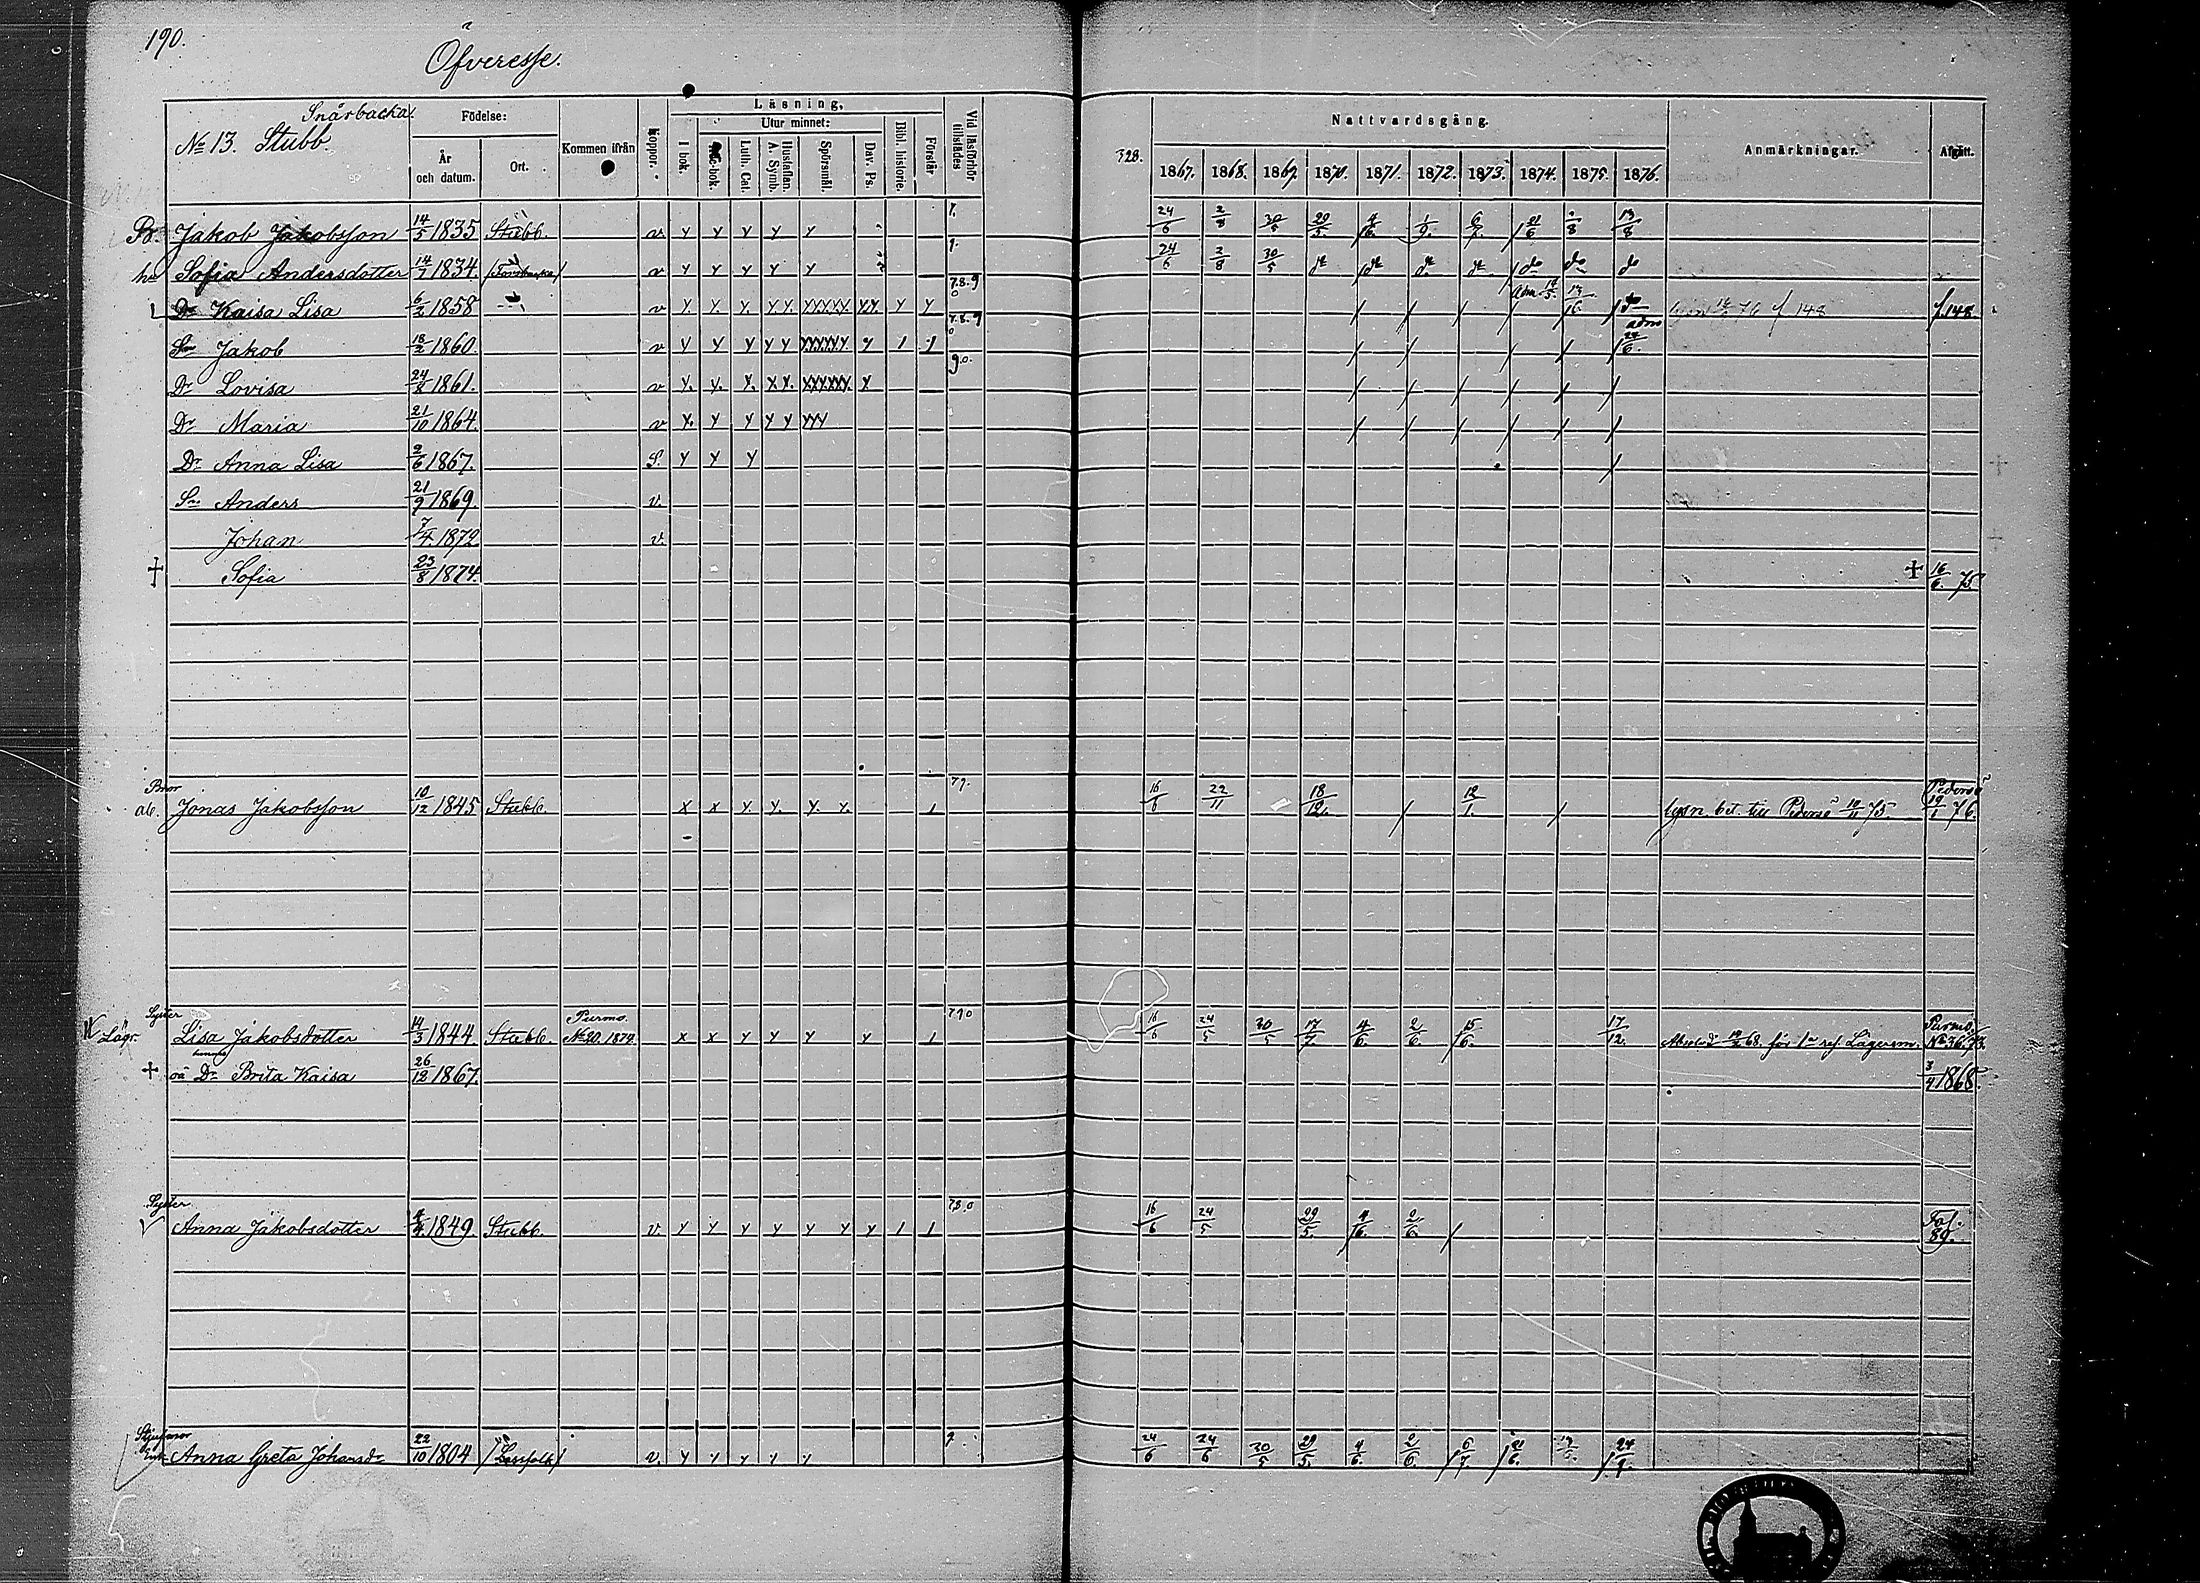 190.
Öfveresse.
Snårbacka.
No 13. Stubb.
Födelse:
År och datum.
Ort.
Kommen ifrån
Koppor.
Läsning,
I bok.
Utur minnet:
Luth. Cat.
Hustaflan. A. Symb.
Spörsmål.
Dav. Ps.
Bibl. historie.
Förstår
Vid läsförhör tillstädes
328.
Nattvardsgång.
1867. 1868. 1869. 1870. 1871. 1872. 1873. 1874. 1875. 1876.
Anmärkningar.
Afgått.
Bo. Jakob Jakobsson 14/5 1835 Stubb. v y y y y y 7. 24/6 2/8 30/5 29/5. 4/6. 1/9. 6/7. 21/6 1/8 13/8
hu Sofia Andersdotter 14/7 1834. v y y y y y 24/6 2/8 30/5 do do do do do do do
Dr Kaisa Lisa 6/2 1858 v y. y. y. y. y. xxxxx. yy. y y 7.8.9 0 f 148 f. 148
Sn Jakob 18/2 1860. v y y y y y xxxxxx y 1 1 7.8.9 0 adm 24/6.
Dr Lovisa 24/8 1861. v y. y. y. x x. xxxxxx. x 9.0.
Dr Maria 21/10 1864. v y. y y y y yyy
Dr Anna Lisa 2/6 1867. S. y y y
Sn Anders 21/9 1869. v.
Johan 7/4. 1872 v.
† Sofia 23/8 1874. † 16/6. 75
Bror
ab. Jonas Jakobsson 10/12 1845 Stubb. x x y. y. y. y. 1 79. 16/6 22/11 18/12. 12/1. lysn. bet. till Pedersö 75. Pedersö 76.
Syster
Lägr. Lisa Jakobsdotter 14/3 1844 Stubb. Purmo. No 20. 1874. x x y y y y 1 790 16/6 24/5 30/5 17/7 4/6. 2/6. 15/6. 17/12. 68. för 1a resj. Lägersm. Purmo. No 36.
† oä Dr Brita Kaisa 26/12 1867. 3/4 1868
Syster
Anna Jakobsdotter 1849. Stubb. v. y y y y y y y 1 1 7.8.0 16/6 24/5 29/5. 4/6. 2/6. Fol. 89.
Styfmor
Enk. Anna Greta Johansdr 22/10 1804 v. y y y y y 7 24/6 24/6 30/5 29/5. 4/6. 2/6. 6/7. 21/6. 24/9.